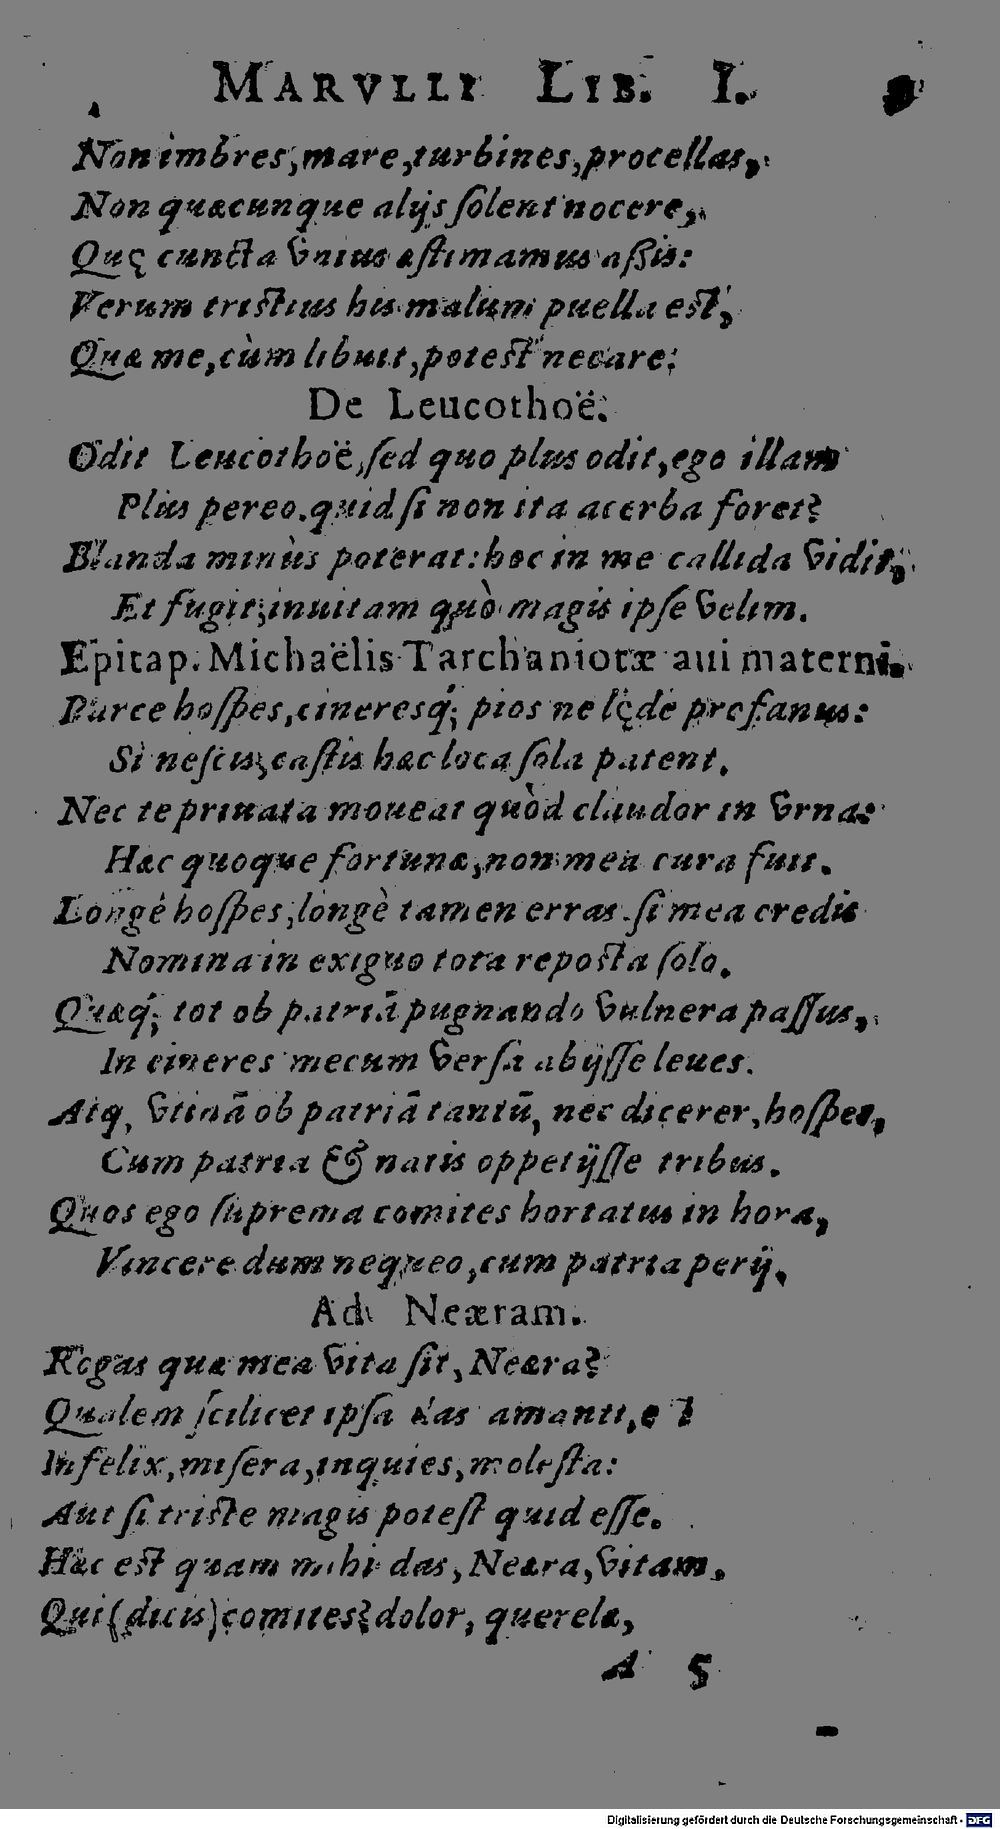 MARVLLI LIB. I. 9
Non imbres, mare, turbines, procellas,
Non quæcunque alijs ſolent nocere,
Quę cuncta vnius æſtimamus aſsis:
Verum triſtius his malum puella eſt,
Quæ me, cùm libuit, poteſt necare.
De Leucothoë.
Odit Leucothoë, ſed quo plus odit, ego illam
Plus pereo. quid ſi non ita acerba foret?
Blanda minùs poterat: hoc in me callida vidit,
Et fugit, inuitam quò magis ipſe velim.
Epitap. Michaëlis Tarchaniotæ aui materni.
Parce hoſpes, cineresq́; pios ne lęde profanus:
Si neſcis, caſtis hæc loca ſola patent.
Nec te priuata moueat quòd claudor in vrna:
Hæc quoque fortunæ, non mea cura fuit.
Longè hoſpes, longè tamen erras. ſi mea credis
Nomina in exiguo tota repoſta ſolo.
Quæq́; tot ob patriā pugnando vulnera paſſus,
In cineres mecum verſa abijſſe leues.
Atq, vtinā ob patriā tantū, nec dicerer, hoſpes,
Cum patria & natis oppetijſſe tribus.
Quos ego ſuprema comites hortatus in hora,
Vincere dum nequeo, cum patria perij.
Ad Neæram.
Rogas quæ mea vita ſit, Neæra?
Qualem ſcilicet ipſa das amanti, e
Infelix, miſera, inquies, moleſta:
Aut ſi triſte magis poteſt quid eſſe.
Hæc eſt quam mihi das, Neæra, vitam.
Qui (dicis) comites? dolor, querelæ,
A 5
Digitalisierung gefördert durch die Deutsche Forschungsgemeinschaft - DFG